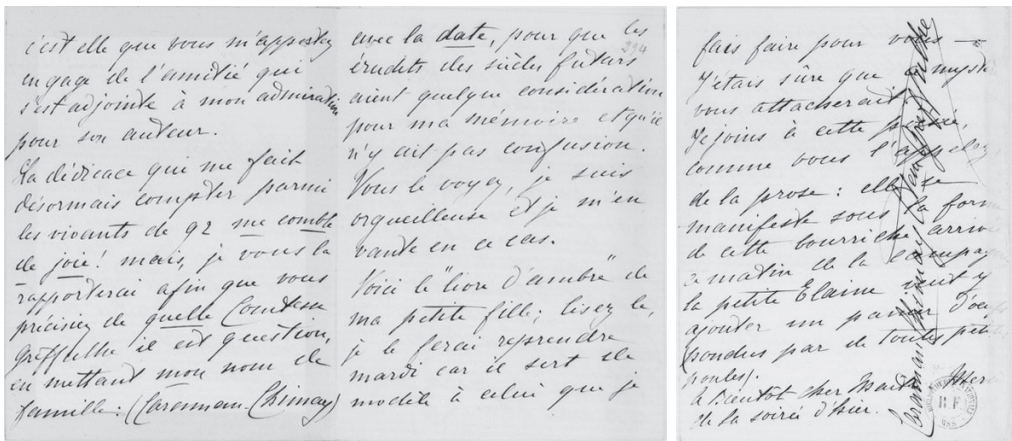 c'est elle que vous m'apportez
en gage de l'amitié qui
s'est adjointe à mon admiration
pour son auteur.
La dédicace qui me fait
désormais compter parmi
les vivants de 92 me comble
de joie! mais, je vous la
rapporterai afin que vous
précisiez de quelle Comtesse
Greffulhe il est question,
en mettant mon nom de
famille: (Caraman-Chimay)
avec la date, pour que les
294
érudits des siècles futurs
aient quelque considération
pour ma mémoire et qu'il
n'y ait pas confusion.
Vous le voyez, je suis
orgueilleuse et je m'en
vante en ce cas.
Voici le "livre d'ambre" de
ma petite fille; lisez le,
je le ferai reprendre
mardi car il sert de
modèle à celui que je
fais faire pour vous —
J'étais sûre que
vous attacherait
Je joins à cette poésie,
comme vous l'appelez,
de la prose: elle se
manifeste sous la forme
de cette bourriche arrivée
ce matin de la campagne
la petite Elaine veut y
ajouter un panier d'oeufs
(pondus par de toutes petites
poules).
à bientôt cher
de la soirée d'hier.
Caraman-Chimay Greffulhe
B.F.